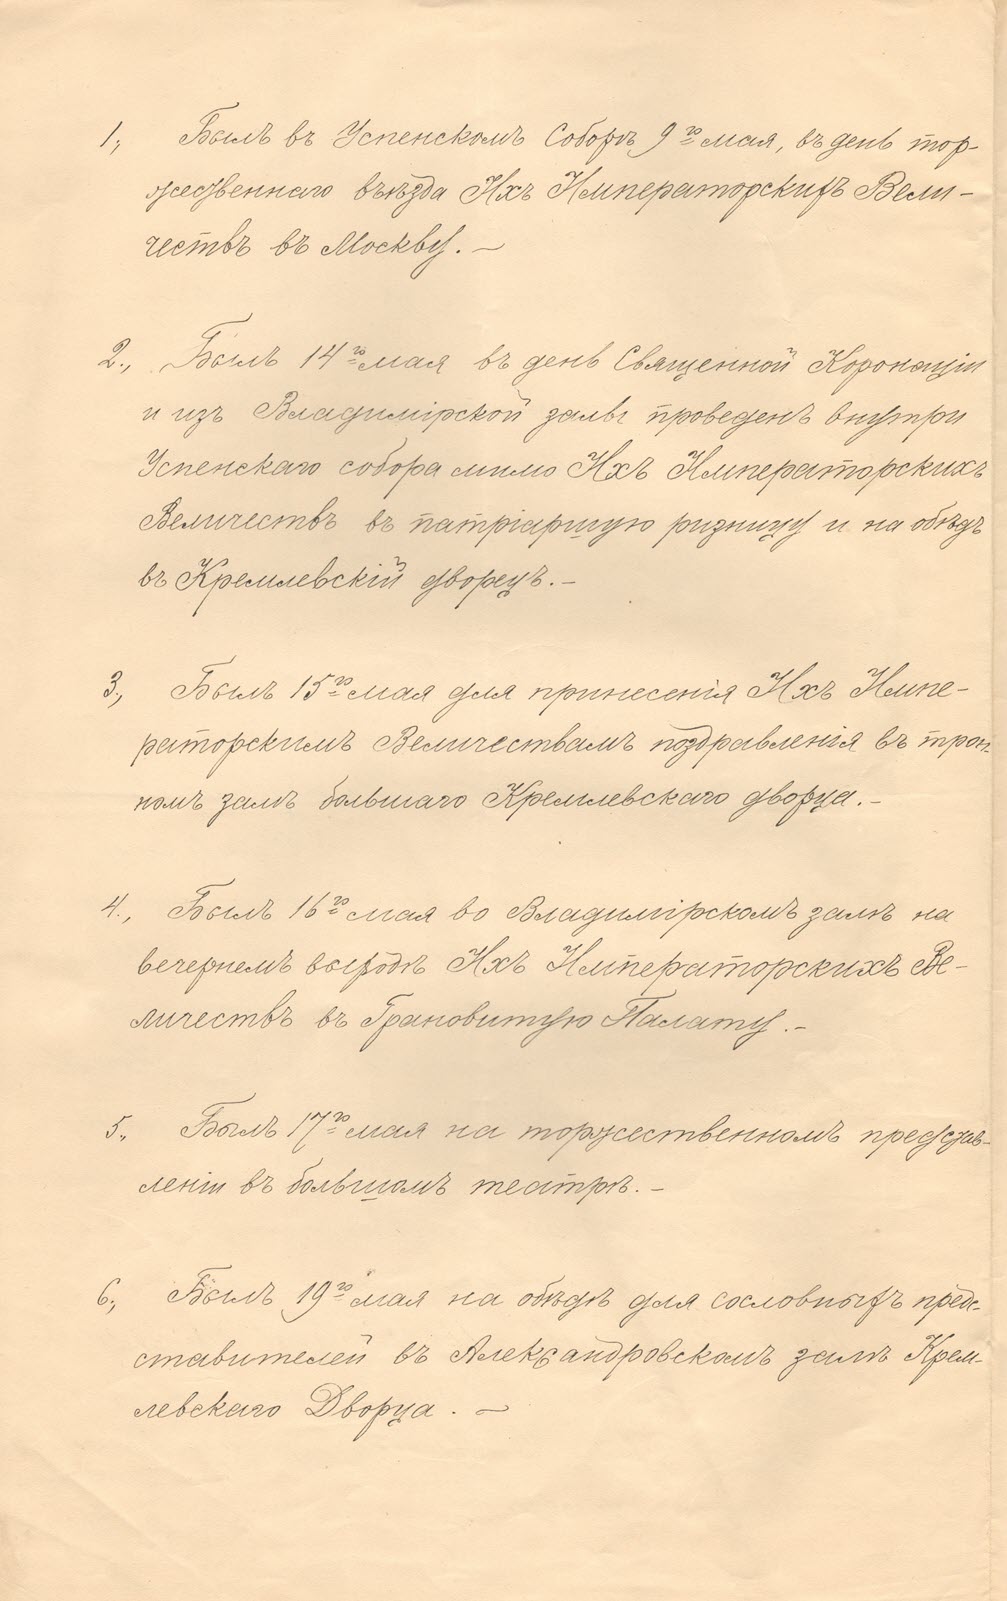 1., Былъ въ Успенскомъ Соборѣ 9го мая, въ день тор-
жественнаго въѣзда Ихъ Императорскихъ Вели-
чествъ въ Москву. —
2., Былъ 14го мая въ день Священной Коронаціи
и изъ Владимірской залы проведенъ внутри
Успенскаго собора мимо Ихъ Императорскихъ
Величествъ въ патріаршую ризницу и на обѣдъ
въ Кремлевскій дворецъ. —
3., Былъ 15го мая для принесенія Ихъ Импе-
раторскимъ Величествамъ поздравленія въ трон-
номъ залѣ большаго Кремлевскаго дворца. —
4., Былъ 16го мая во Владимірскомъ залѣ на
вечернемъ выходѣ Ихъ Императорскихъ Ве-
личествъ въ Грановитую Палату. —
5., Былъ 17го мая на торжественномъ представ-
леніи въ большомъ театрѣ. —
6., Былъ 19го мая на обѣдѣ для сословныхъ пред-
ставителей въ Александровскомъ залѣ Крем-
левскаго Дворца. —